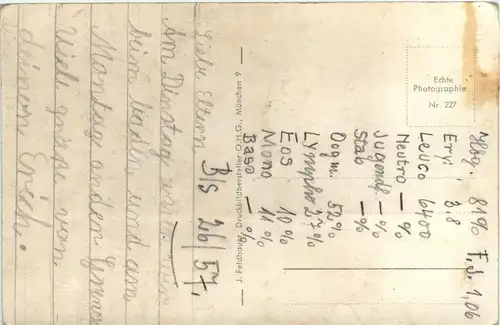 Liebe Eltern,
Am Dienstag waren wir
beim baden und am
Montag an den
Viele grüße von
Erich.
B/S 26/57.
J. Feldbauer, Druckbildhersteller O.H.G., München 9
Echte
Photographie
Nr. 227
Hbg. 81% F.J. 1,06
Ery. 3,8
Leuco 6400
Neutro — %
Jugendf. — %
Stab — %
Segm. 52%
Lympho 27%
Eos 10%
Mono 11%
Baso — %